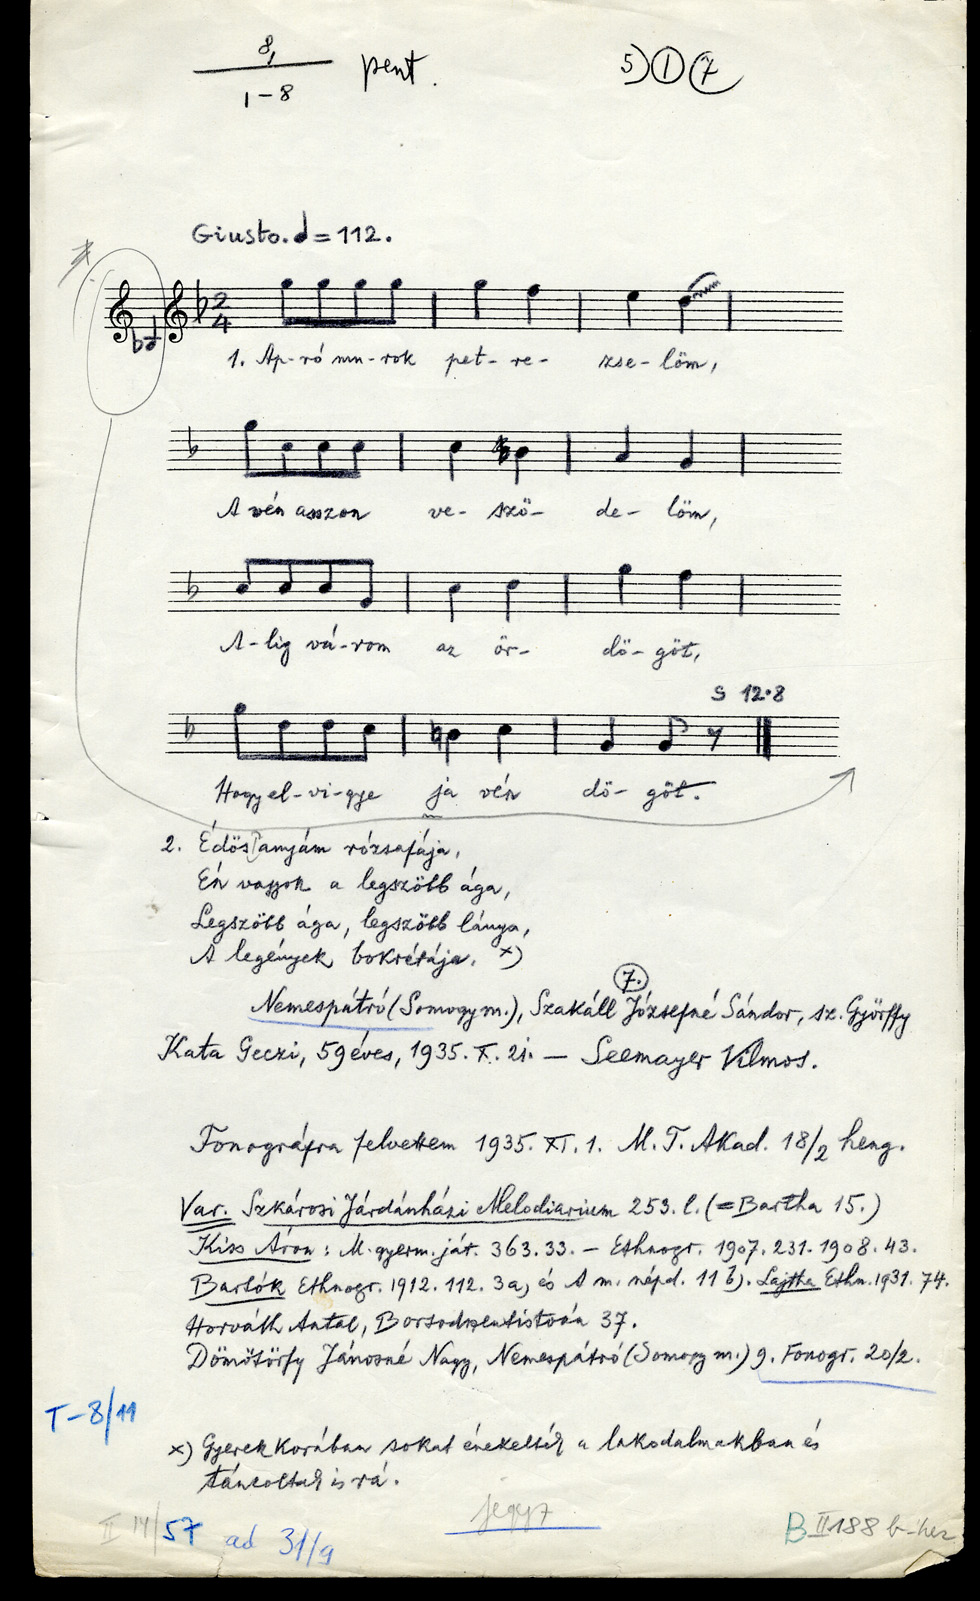 8,
1-8
pent.
5) 1 7
Giusto. = 112.
2
4
1. Ap-ró mu-rok pet-re- zse-löm,
A vén asszon ve-sző- de-löm,
A-lig vá-rom az ör- dö-göt,
S 12.8
Hogy el-vi-gye ja vén dö-göt.
2. Édös anyám rózsafája,
Én vagyok a legszöbb ága,
Legszöbb ága, legszöbb lánya,
A legények bokrétája. x)
7.
Nemespátró (Somogy m.), Szakáll Józsefné Sándor, sz. Györffy
Kata Geczi, 59 éves, 1935. X. 21. — Seemayer Vilmos.
Fonográfra felvettem 1935. XI. 1. M. T. Akad. 18/2 heng.
Var. Szkárosi Járdánházi Melodiarium 253. l. (=Bartha 15.)
Kiss Áron: M. gyerm. ját. 363. 33. - Ethnogr. 1907. 231. 1908. 43.
Bartók Ethnogr. 1912. 112. 3a, és A m. népd. 11 b). Lajtha Ethn. 1931. 74.
Horváth Antal, Borsodszentistván 37.
Dömötörfy Jánosné Nagy, Nemespátró (Somogy m.) 9. Fonogr. 20/2.
T-8/11
x) Gyerek korában sokat énekelték a lakodalmakban és
táncoltak is rá.
jegyz
II 14/57 ad 31/9
B II 188 b-hez